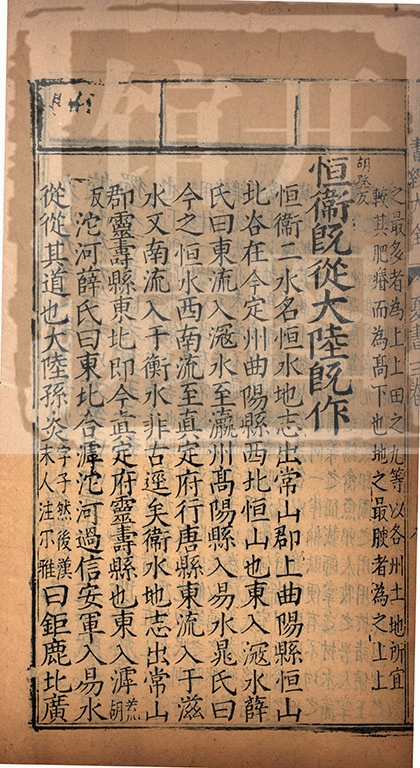 之最多者為上上田之九等以各州土地所宜
較其肥瘠而為高下也地之最腴者為之上上
恒衛旣從大陸旣作
恒衛二水名恒水地志出常山郡上曲陽縣恒山
北谷在今定州曲陽縣西北恒山也東入滱水薛
氏曰東流入滱水至瀛州髙陽縣入易水晁氏曰
今之恒水西南流至真定府行唐縣東流入于滋
水又南流入于衡水非古逕矣衛水地志出常山
郡靈壽縣東北即今真定府靈壽縣也東入滹
沱河薛氏曰東北合滹沱河過信安軍入易水
從從其道也大陸孫炎字子然後漢末人注尔雅曰鉅鹿北廣